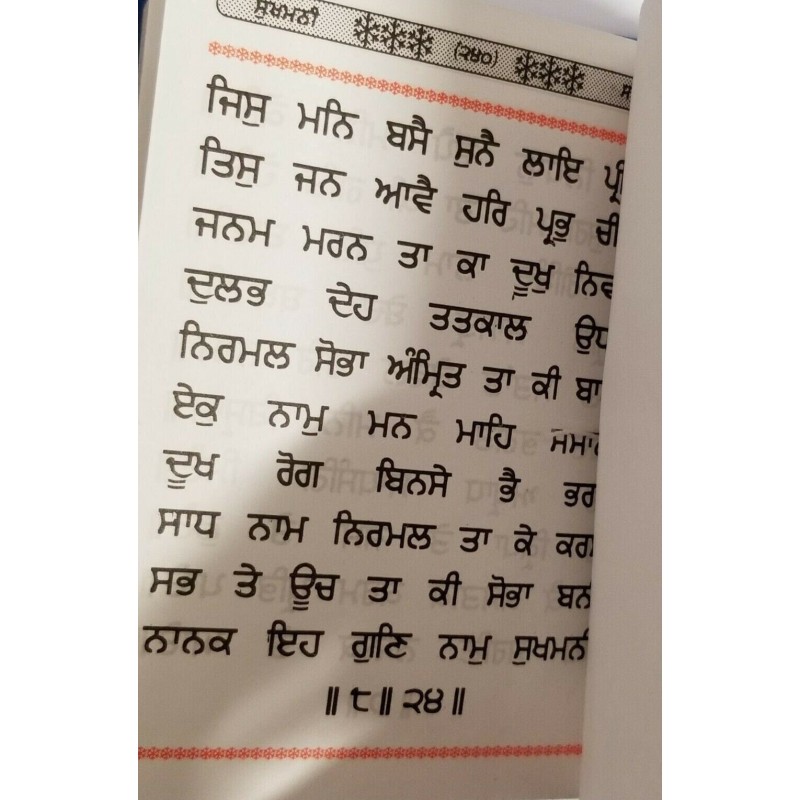 ਸੁਖਮਨੀ (੨੪੦)
ਜਿਸੁ ਮਨਿ ਬਸੈ ਸੁਨੈ ਲਾਇ
ਤਿਸੁ ਜਨ ਆਵੈ ਹਰਿ ਪ੍ਰਭੁ
ਜਨਮ ਮਰਨ ਤਾ ਕਾ ਦੂਖੁ
ਦੁਲਭ ਦੇਹ ਤਤਕਾਲ
ਨਿਰਮਲ ਸੋਭਾ ਅੰਮ੍ਰਿਤ ਤਾ ਕੀ
ਏਕੁ ਨਾਮੁ ਮਨ ਮਾਹਿ
ਦੂਖ ਰੋਗ ਬਿਨਸੇ ਭੈ
ਸਾਧ ਨਾਮ ਨਿਰਮਲ ਤਾ ਕੇ
ਸਭ ਤੇ ਊਚ ਤਾ ਕੀ ਸੋਭਾ ਬਨੀ
ਨਾਨਕ ਇਹ ਗੁਣਿ ਨਾਮੁ ਸੁਖਮਨੀ
॥੮॥੨੪॥